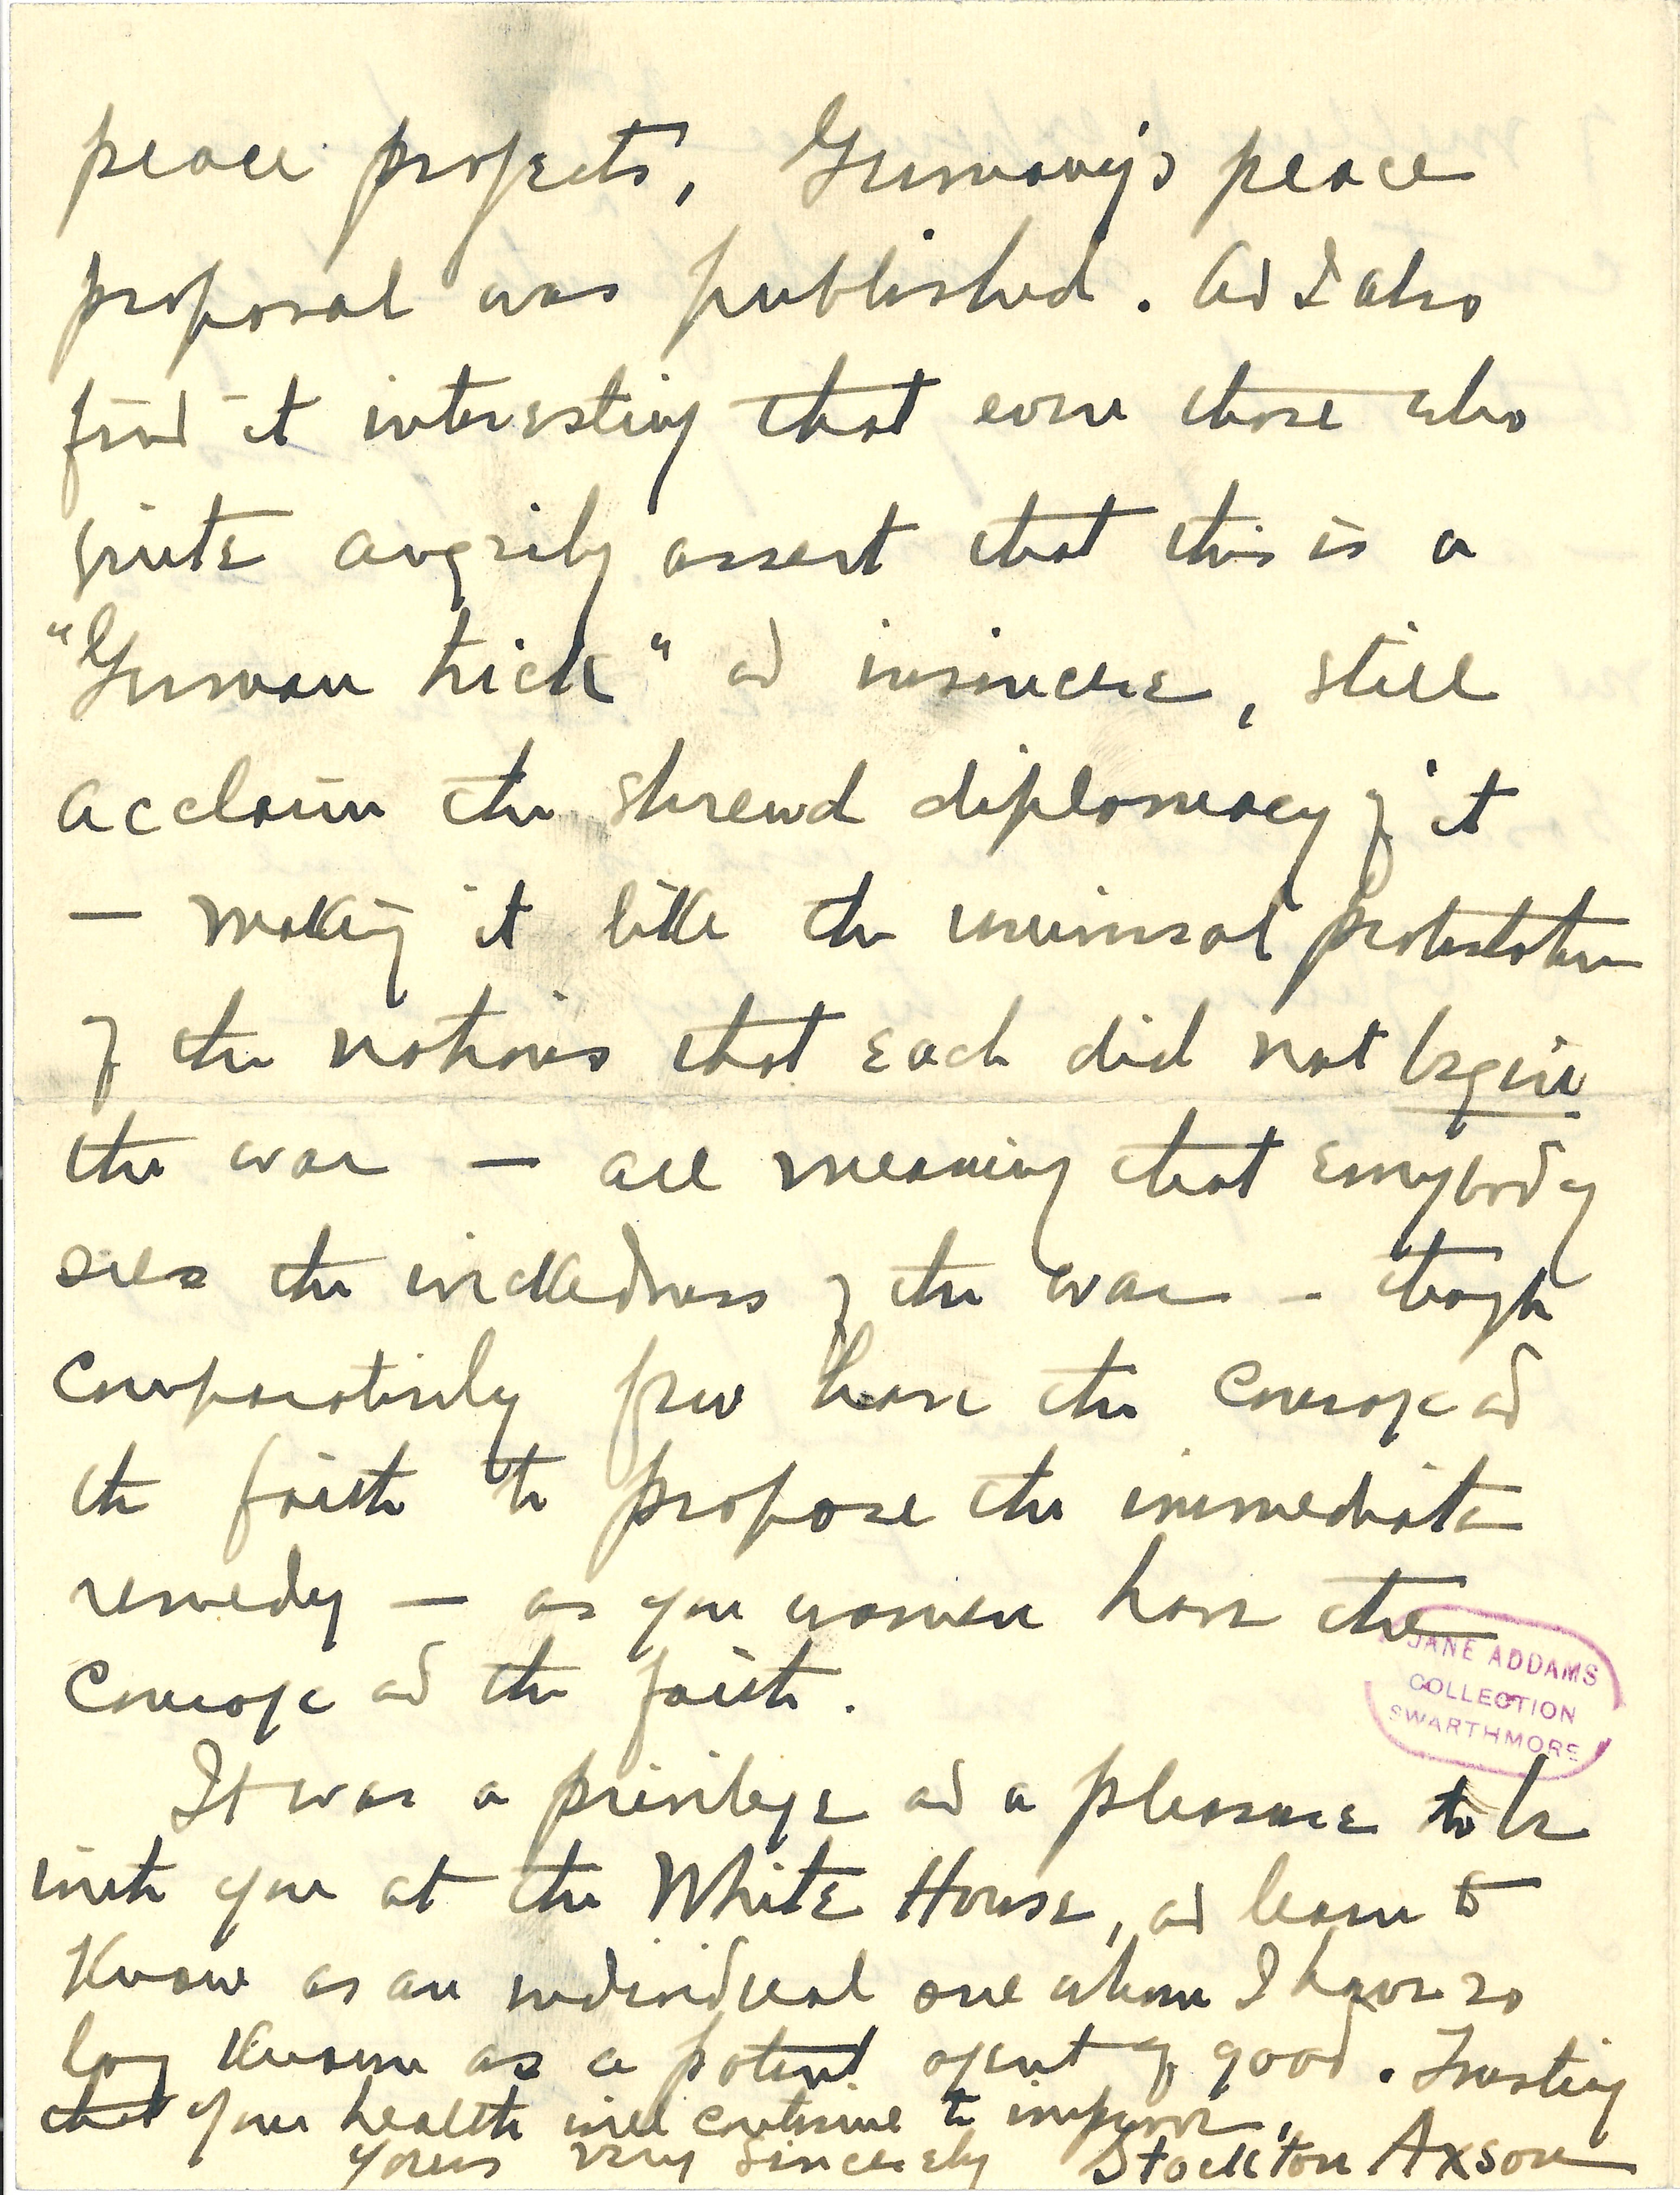 peace projects, Germany's peace
proposal was published. And I also
find it interesting that even those who
quite angrily assert that this is a
"German trick" and insincere, still
acclaim the shrewd diplomacy of it
— making it like the universal protestation
of the nations that each did not begin
the war — all meaning that everybody
sees the wickedness of the war – though
comparatively few have the courage and
the faith to propose the immediate
remedy — as you women have the
courage and the faith.
JANE ADDAMS
COLLECTION
SWARTHMORE
It was a privilege and a pleasure to be
with you at the White House, and learn to
know as an individual one whom I have so
long known as a potent agent of good. Trusting
that your health will continue to improve,
Yours very sincerely Stockton Axson